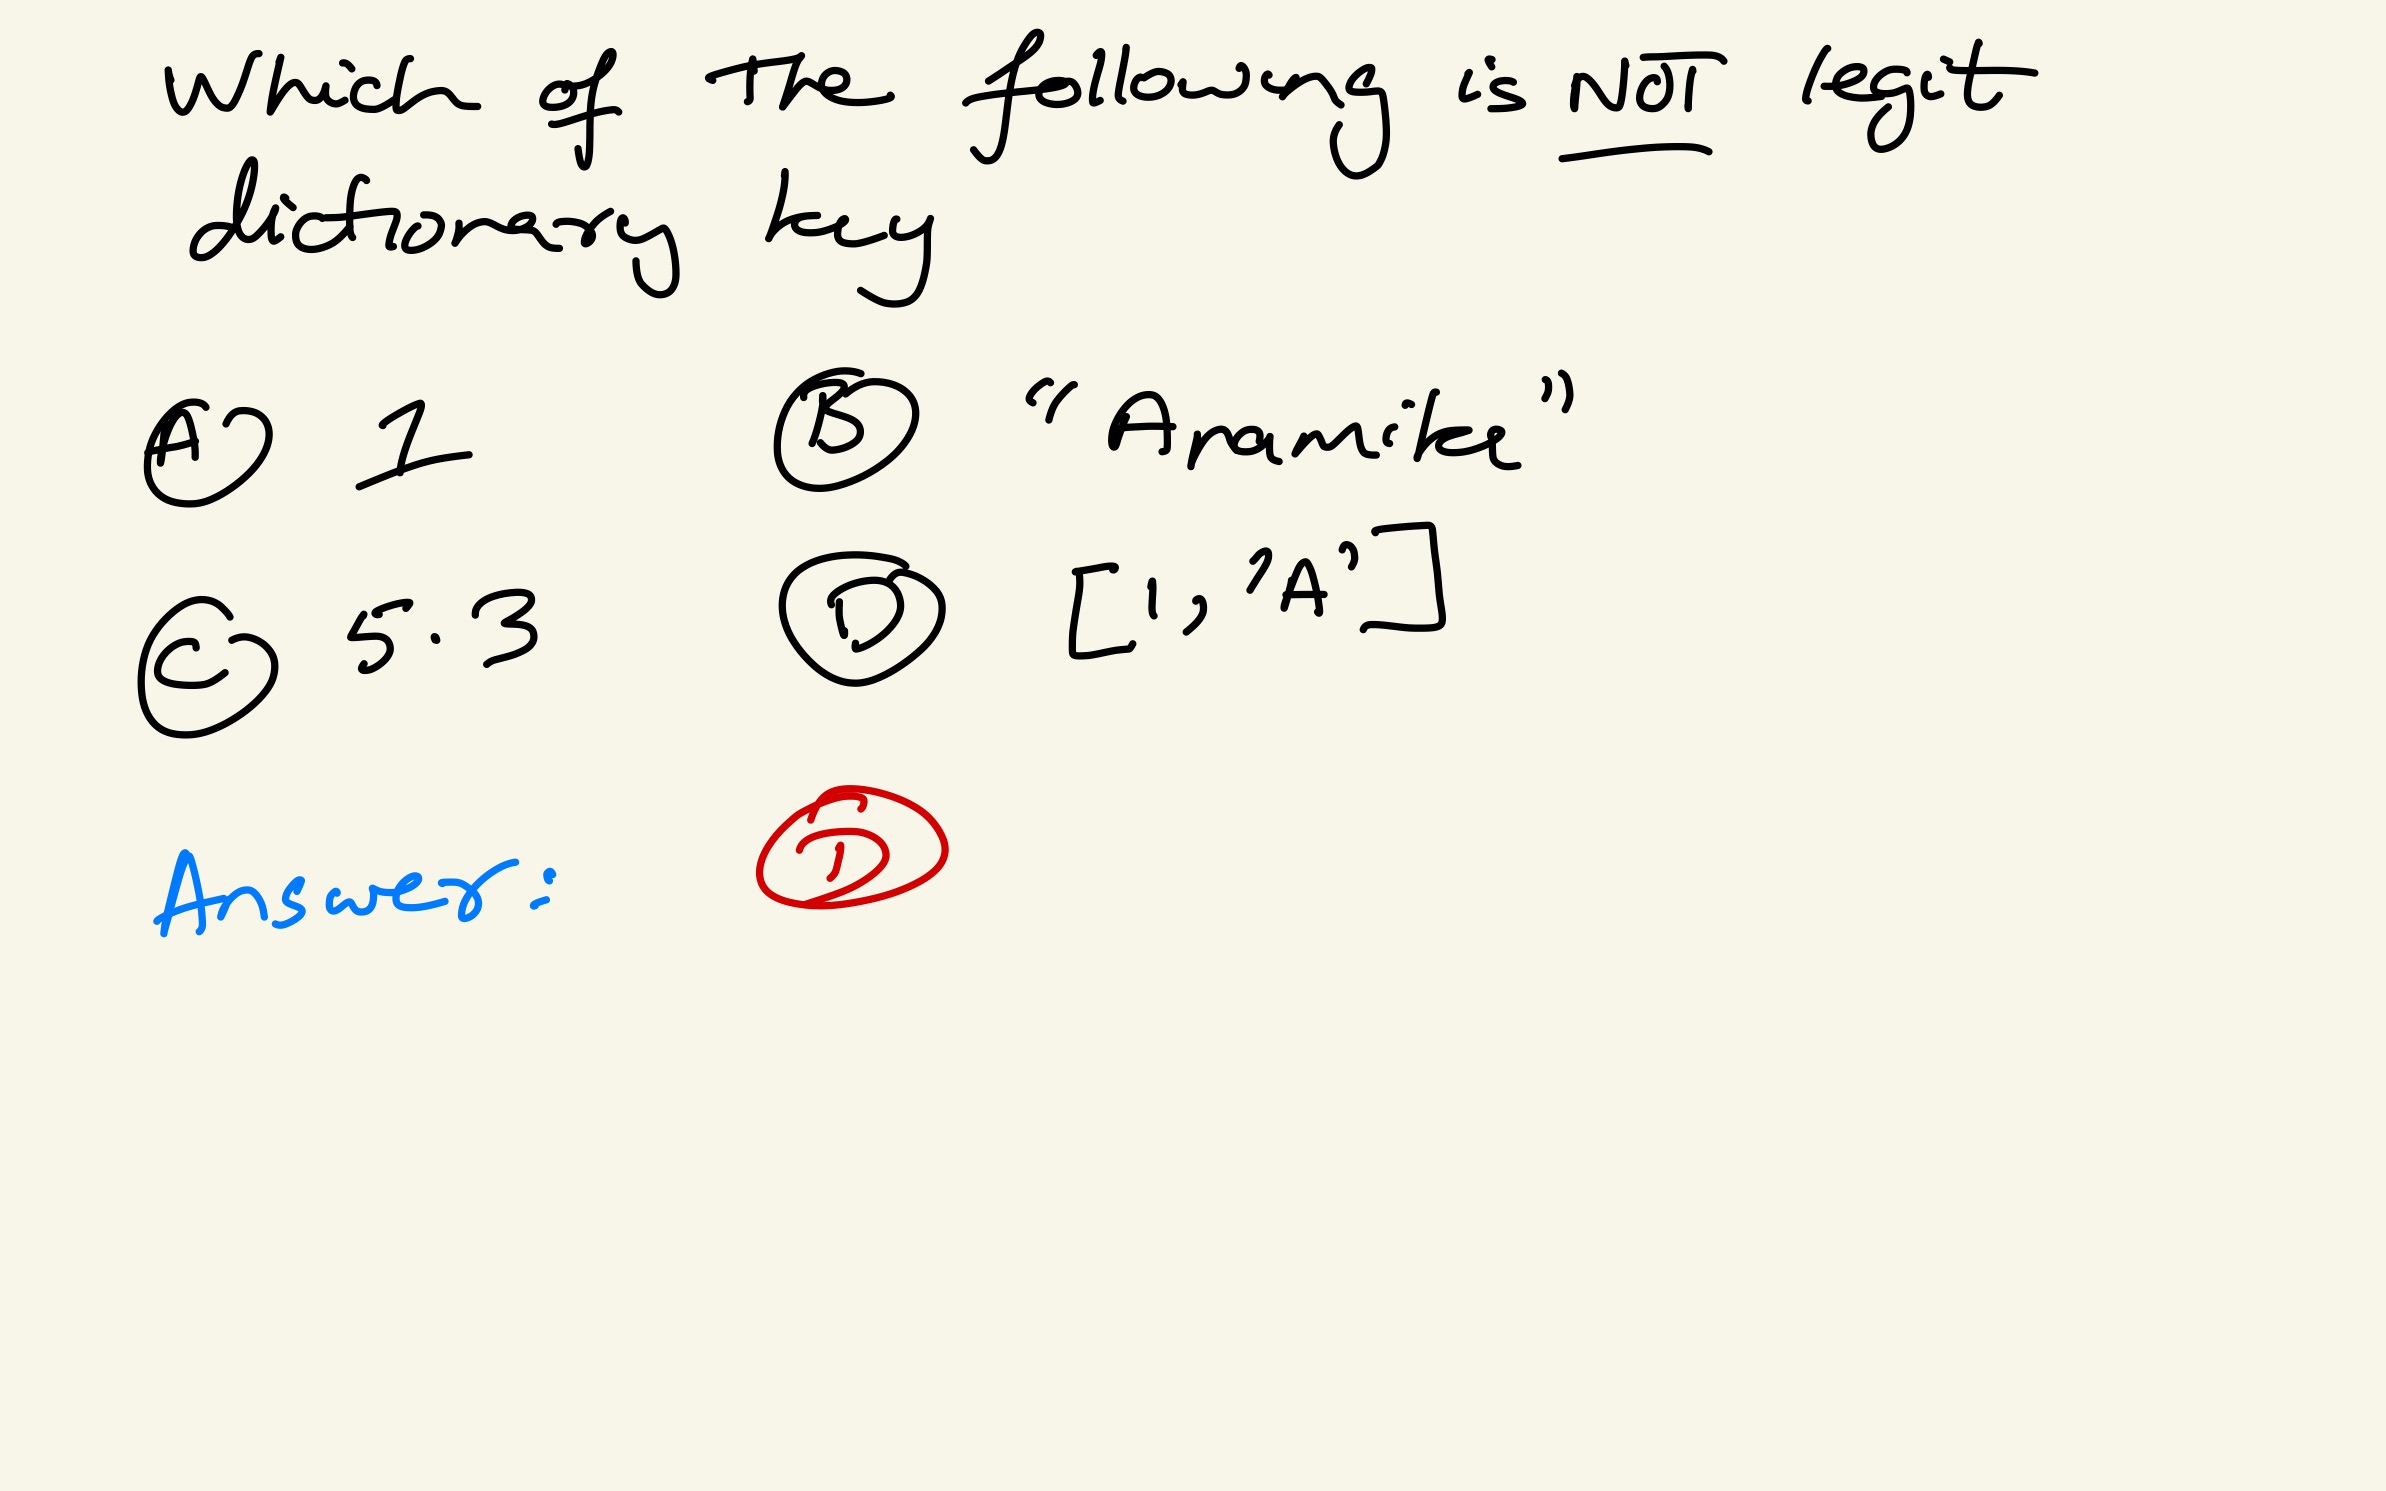 Which of the following is NOT legit
dictionary key
A 1 B "Anamika"
C 5.3 D [1, 'A']
Answer: D